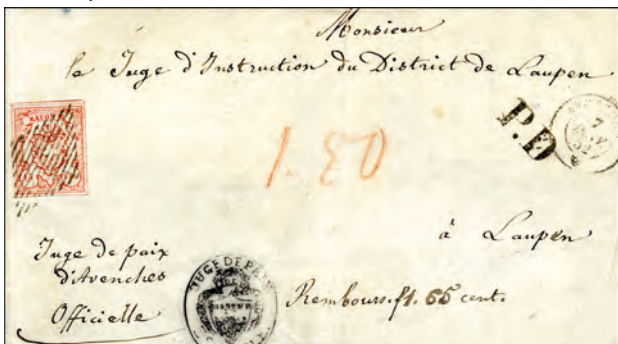 Monsieur
le Juge d'Instruction du District de Laupen
RAYON
P.D
7
52
1.80
à Laupen
Juge de paix
d'Avenches
Officielle
JUGE DE PAIX
Rembours. f1. 65 cent.